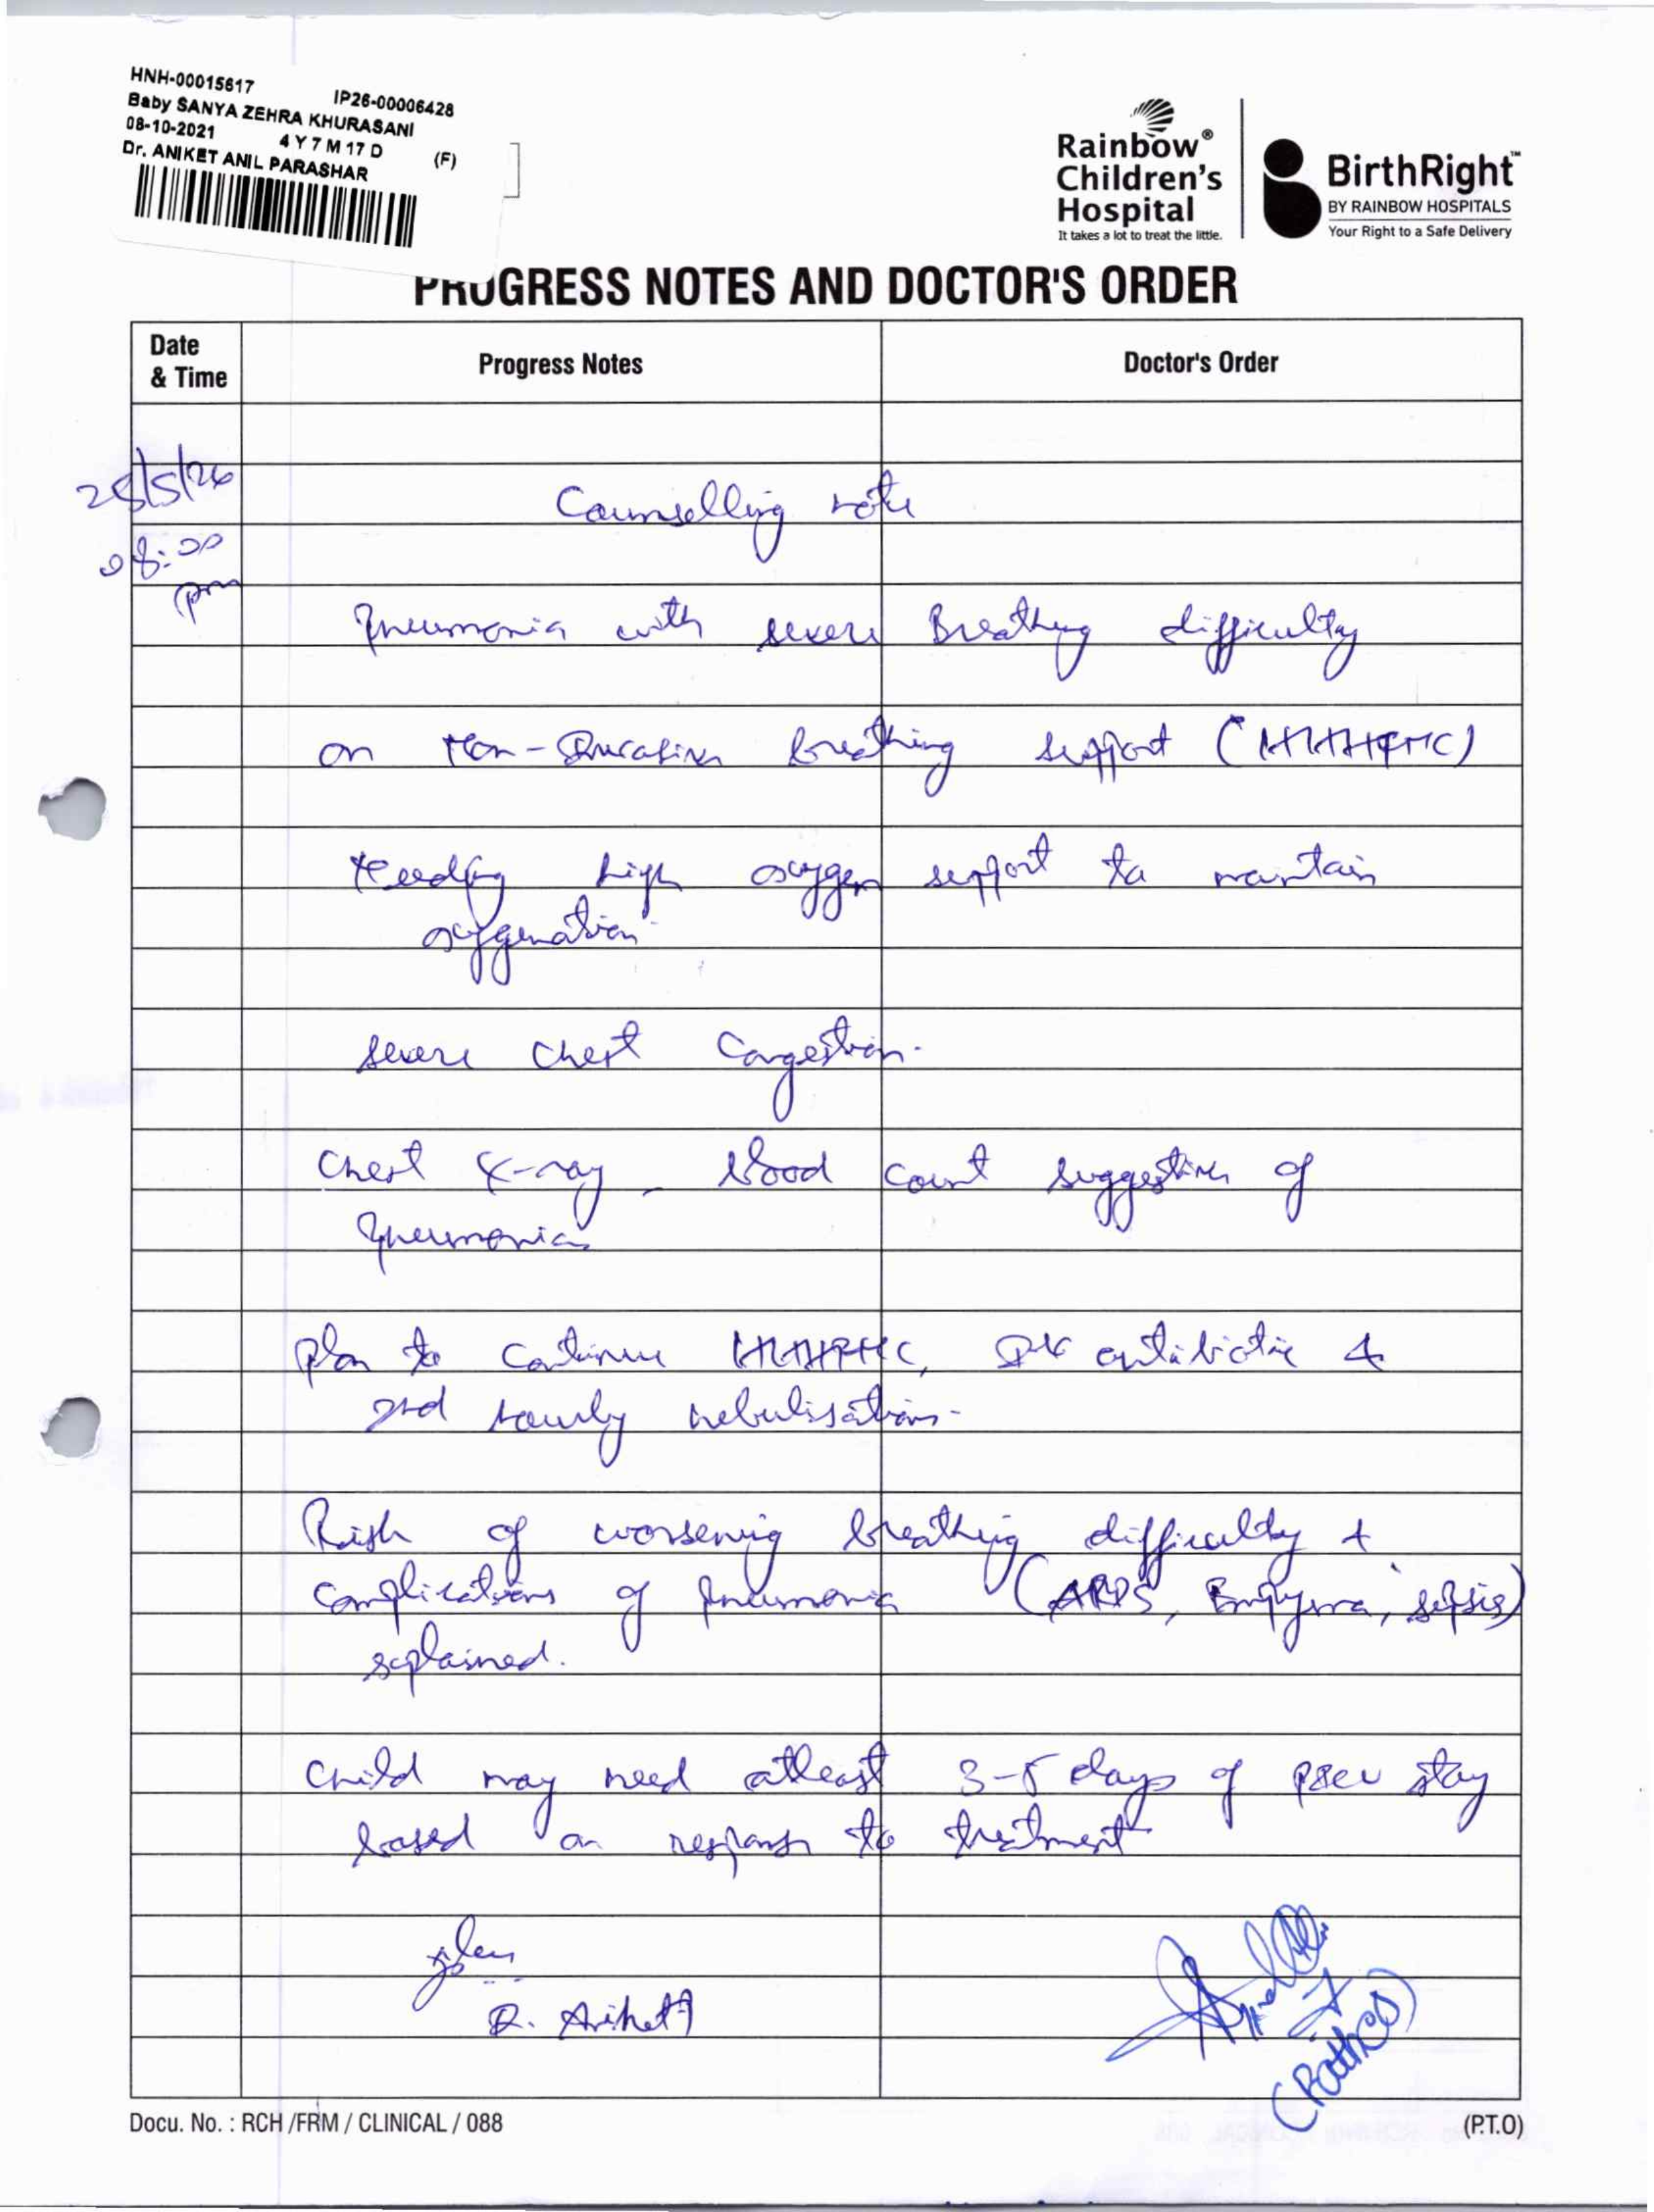 HNH-00015617 IP26-00006428
Baby SANYA ZEHRA KHURASANI
08-10-2021 4 Y 7 M 17 D (F)
Dr. ANIKET ANIL PARASHAR
Rainbow®
Children's
Hospital
It takes a lot to treat the little.
BirthRight™
BY RAINBOW HOSPITALS
Your Right to a Safe Delivery
PROGRESS NOTES AND DOCTOR'S ORDER
Date & Time Progress Notes Doctor's Order
25/5/26
08:00 pm
Counselling note
Pneumonia with severe Breathing difficulty
on Non-Invasive breathing support (HHHFNC)
Needing high oxygen support to maintain
oxygenation
severe chest congestion.
Chest X-ray - blood count suggestive of
pneumonia
plan to continue HHHFNC, IV antibiotic &
2nd hourly nebulisation.
Risk of worsening breathing difficulty +
complications of pneumonia (ARDS, Empyema, sepsis)
explained.
Child may need atleast 3-5 days of PICU stay
based on response to treatment
Dr. Aniket
(Father)
Docu. No. : RCH /FRM / CLINICAL / 088
(P.T.O)